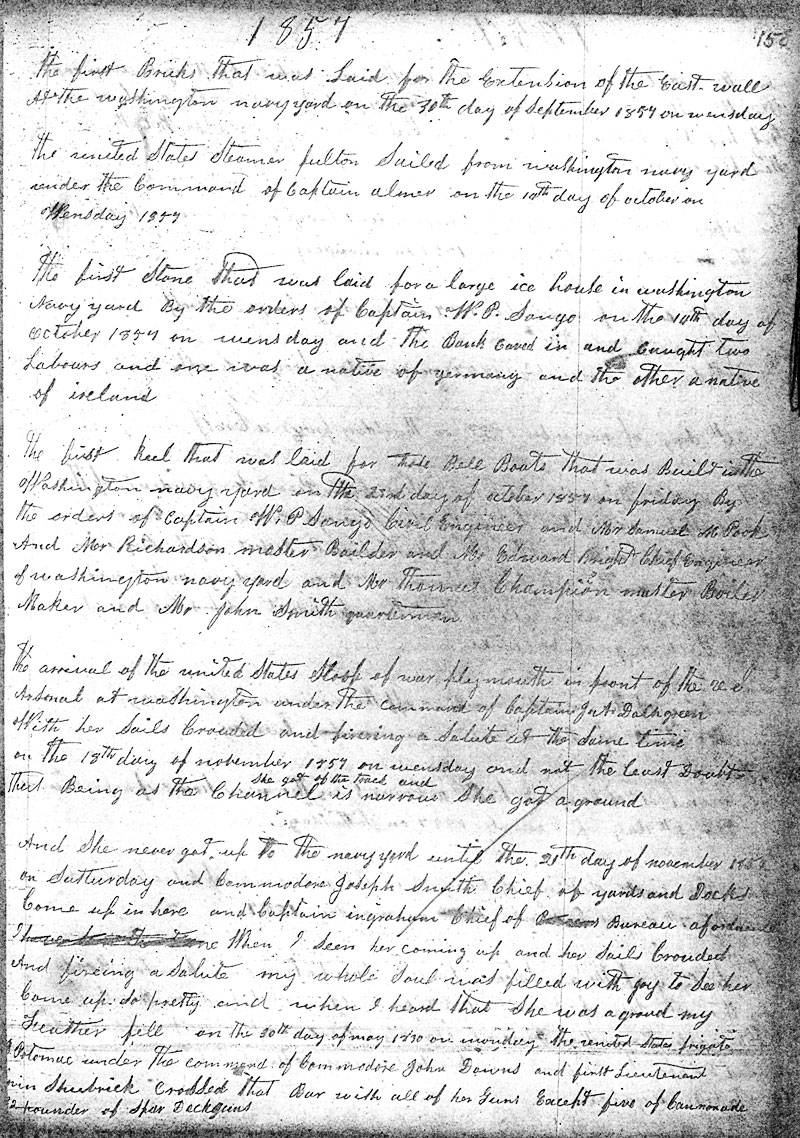 1857
150
the first Bricks that was Laid for the Extension of the East wall
At the washington navy yard on the 30th day of September 1857 on wensday
the united States Steamer fulton Sailed from washington navy yard
under the Command of Captain almer on the 14th day of october on
Wensday 1857
the first Stone that was laid for a large ice house in washington
Navy yard By the orders of Captain W. P. Sango on the 14th day of
October 1857 on wensday and the Bank Caved in and Caught two
Labours and one was a native of germany and the other a native
of ireland
the first keel that was laid for those Bell Boats that was Built in the
Washington navy yard on the 23rd day of october 1857 on friday By
the orders of Captain W. P Sango Civil Engineer and Mr Samuel M Pook
And Mr Richardson master Builder and Mr Edward Knight Chief Engineer
of washington navy yard and Mr Thomas Champion master Boiler
Maker and Mr John Smith quarterman
the arrival of the united States Sloop of war plymouth in front of the
Arsonal at washington under the command of Captain J. A. Dalhgreen
With her Sails Crouded and fireing a Salute at the Same time
on the 18th day of november 1857 on wensday and not the least Doubt
that Being as the Channel is narrow She got of the track and She got a ground
And She never got up to the navy yard until the 21th day of november 1857
on Satturday and Commodore Joseph Smith Chief of yards and Docks
Come up in here and Captain ingraham Chief of Bureau of ordnance
When I Seen her coming up and her Sails Crouded
And fireing a Salute my whole Soul was filled with joy to See her
Come up So pretty and when I heard that She was a groud my
Feather fell on the 30th day of may 1830 on monday the united States frigate
Potomac under the command of Commodore John Downs and first Lieutenant
Shubrick Crossed that Bar with all of her Guns Except five of Cannonade
pounder of Spar Deck guns